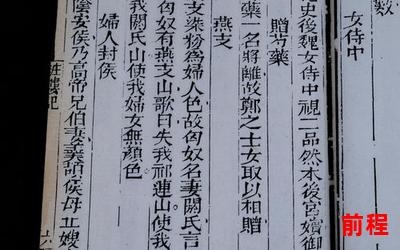 數
女侍中
史後魏女侍中視二品然本後宮嬪御
贈芍藥
藥一名將離故鄭之士女取以相贈
燕支
支染粉為婦人色故匈奴名妻閼氏言
匈奴有燕支山歌曰失我祁連山使我
我閼氏山使我婦女無顏色
婦人封侯
陰安侯乃高帝兄伯妻羹頡侯母丘嫂
粧樓記
六
前程